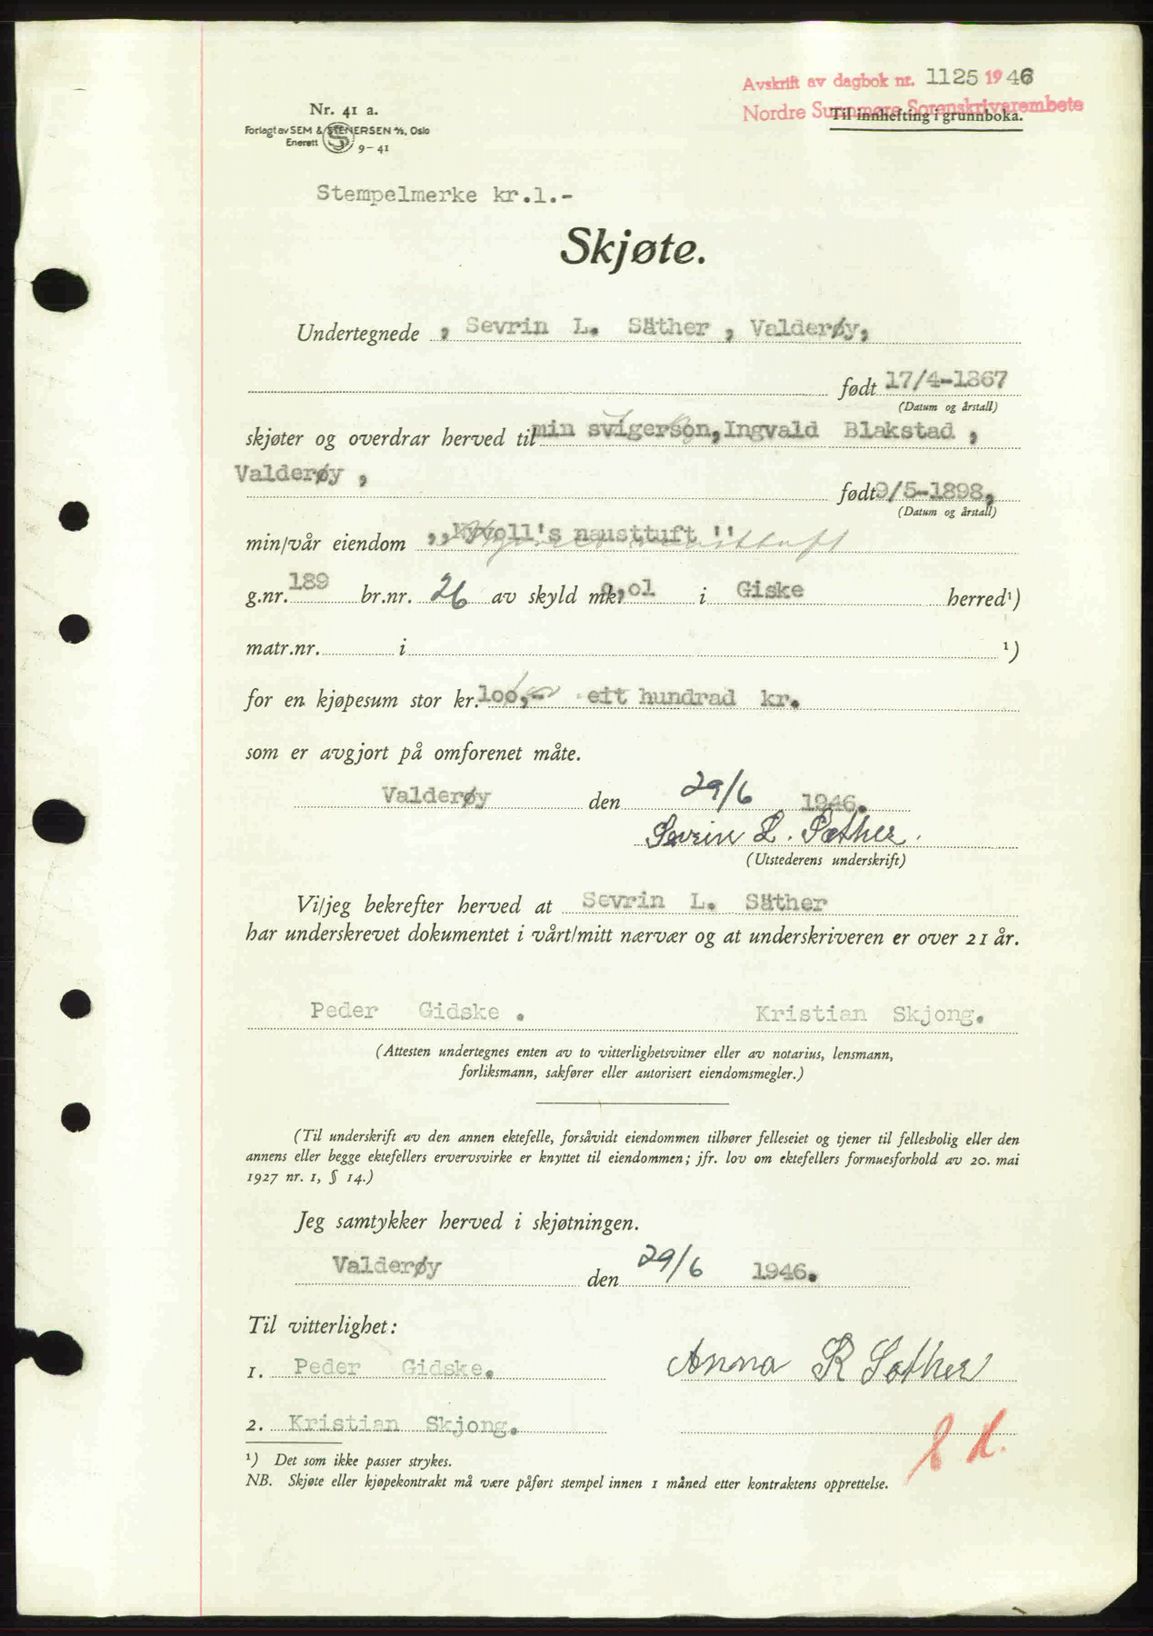 Avskrift av dagbok nr. 1125 1946
Nordre Sunnmøre Sorenskriverembete
Til innhefting i grunnboka.
Nr. 41 a.
Forlagt av SEM & STENERSEN A/S, Oslo
Enerett 9-41
Stempelmerke kr.1.-
Skjøte.
Undertegnede , Sevrin L. Säther , Valderøy,
født 17/4-1867
(Datum og årstall)
skjøter og overdrar herved til min svigerson, Ingvald Blakstad ,
Valderøy ,
født 9/5-1898,
(Datum og årstall)
min/vår eiendom ,, Nyvoll's nausttuft ''
g.nr. 189 br.nr. 26 av skyld mk. 0,01 i Giske herred¹)
matr.nr. i ¹)
for en kjøpesum stor kr. 100,- eit hundrad kr.
som er avgjort på omforenet måte.
Valderøy den 29/6 1946.
Sevrin L. Sæther.
(Utstederens underskrift)
Vi/jeg bekrefter herved at Sevrin L. Säther
har underskrevet dokumentet i vårt/mitt nærvær og at underskriveren er over 21 år.
Peder Gidske . Kristian Skjong.
(Attesten undertegnes enten av to vitterlighetsvitner eller av notarius, lensmann,
forliksmann, sakfører eller autorisert eiendomsmegler.)
(Til underskrift av den annen ektefelle, forsåvidt eiendommen tilhører felleseiet og tjener til fellesbolig eller den
annens eller begge ektefellers ervervsvirke er knyttet til eiendommen; jfr. lov om ektefellers formuesforhold av 20. mai
1927 nr. 1, § 14.)
Jeg samtykker herved i skjøtningen.
Valderøy den 29/6 1946.
Til vitterlighet:
1. Peder Gidske. Anna R Sæther
2. Kristian Skjong.
¹) Det som ikke passer strykes.
NB. Skjøte eller kjøpekontrakt må være påført stempel innen 1 måned etter kontraktens opprettelse.